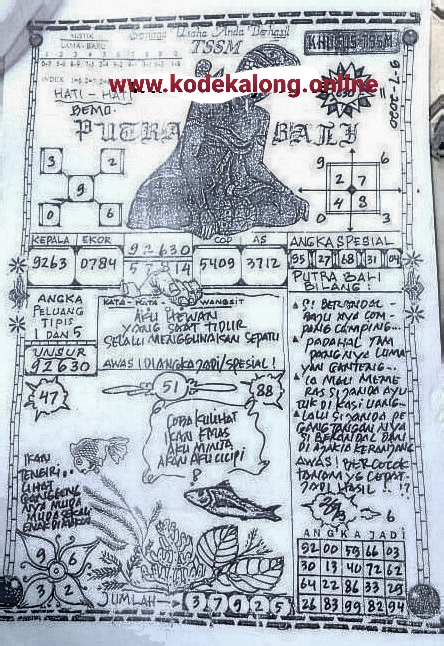 MISTIK
LAMA - BARU
Semoga Usaha Anda Berhasil
TSSM
KHUSUS TSSM
9-7-2020
INDEX
www.kodekalong.online
HATI - HATI
BEMO.
PUTRA BALI
3 2
9
0 6
9 6
2 7
4 8
0 3
KEPALA EKOR
9263 0784
92630
57 14
COP AS
5409 3712
ANGKA SPESIAL
95 27 68 31 04
PUTRA BALI
BILANG :
ANGKA
PELUANG
TIPIS
1 DAN 5
UNSUR
92630
47
KATA - KATA WANGSIT
AKU HEWAN
YANG SAAT TIDUR
SELALU MENGGUNAKAN SEPATU
AWAS! DIANGKA JADI/SPESIAL!
51
88
COBA KULIHAT
IKAN EMAS
AKU MINTA
AKAN AKU CICIPI
?
?! BERANDAL -
BAJU NYA COM -
PANG CAMPING...
PADAHAL TAM
PANG NYA LUMA
YAN GANTENG...
RAS SI JANDA AYU
TUK DI KASI UANG...
LALU SI JANDA PE
GANG TANGAN NYA
SI BERANDAL DAN
DI AJAK KE RANJANG
AWAS! BER COCOK
TANAM YG CEPAT
JADI HASIL .. !?
IKAN
TENGIRI..
LIHAT
NYA MUDA
MUDA SEKALI
9 6
3 2
6
ANGKA JADI
92 00 59 66 03
30 13 40 72 62
64 22 86 33 29
26 83 99 82 94
JUMLAH → 3 7 9 2 5